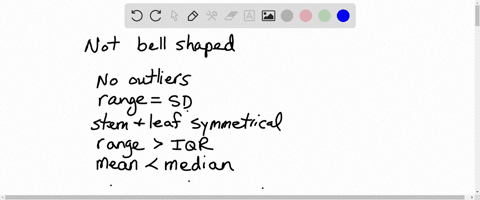 Not bell shaped
No outliers
range = SD
stem + leaf symmetrical
range > IQR
mean < median